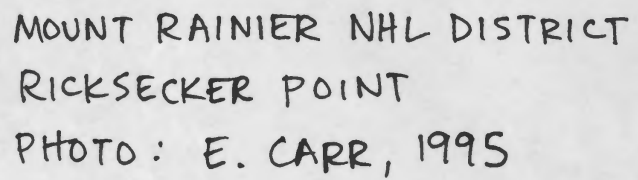 MOUNT RAINIER NHL DISTRICT
RICKSECKER POINT
PHOTO: E. CARR, 1995